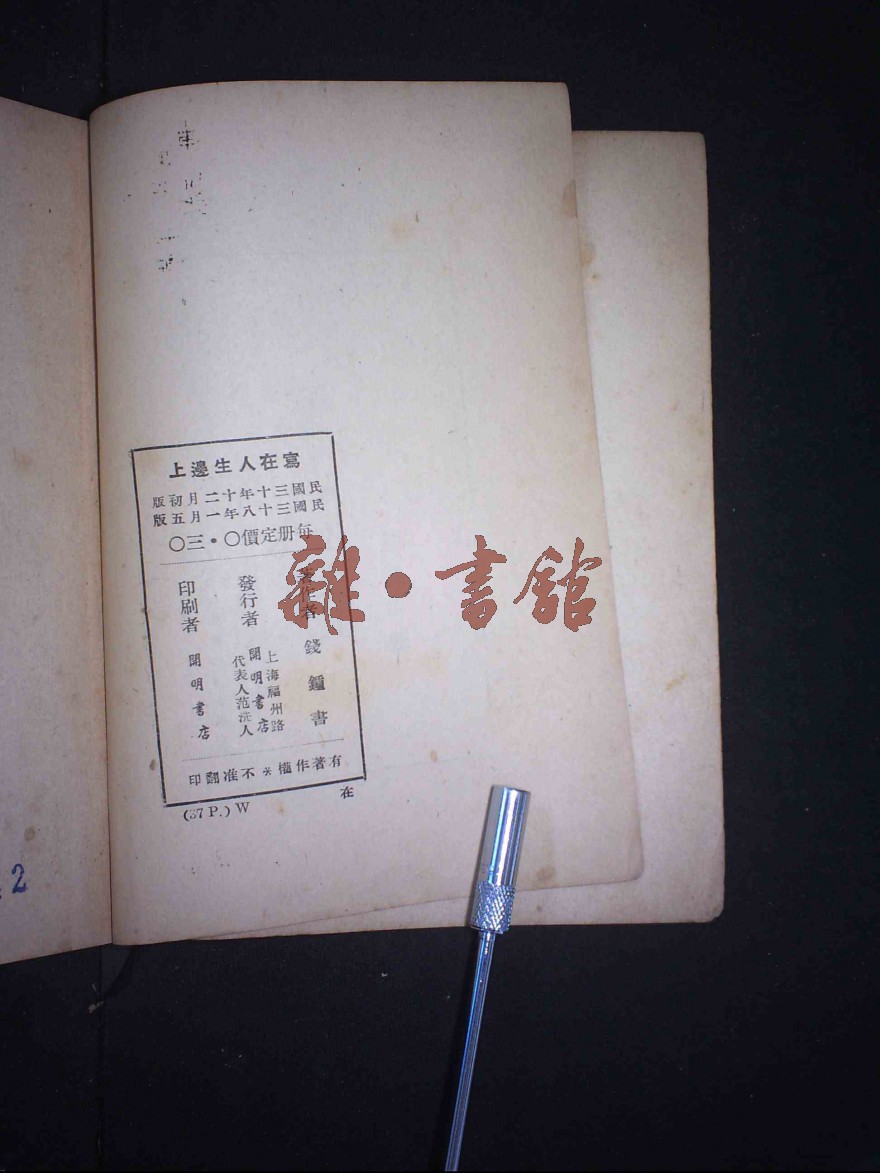 寫在人生邊上
民國三十年十二月初版
民國三十八年一月五版
每册定價〇·三〇
著作者 錢鍾書
發行者
上海福州路
開明書店
代表人范洗人
印刷者 開明書店
有著作權＊不准翻印
(37 P.) W
在
雜·書館
2